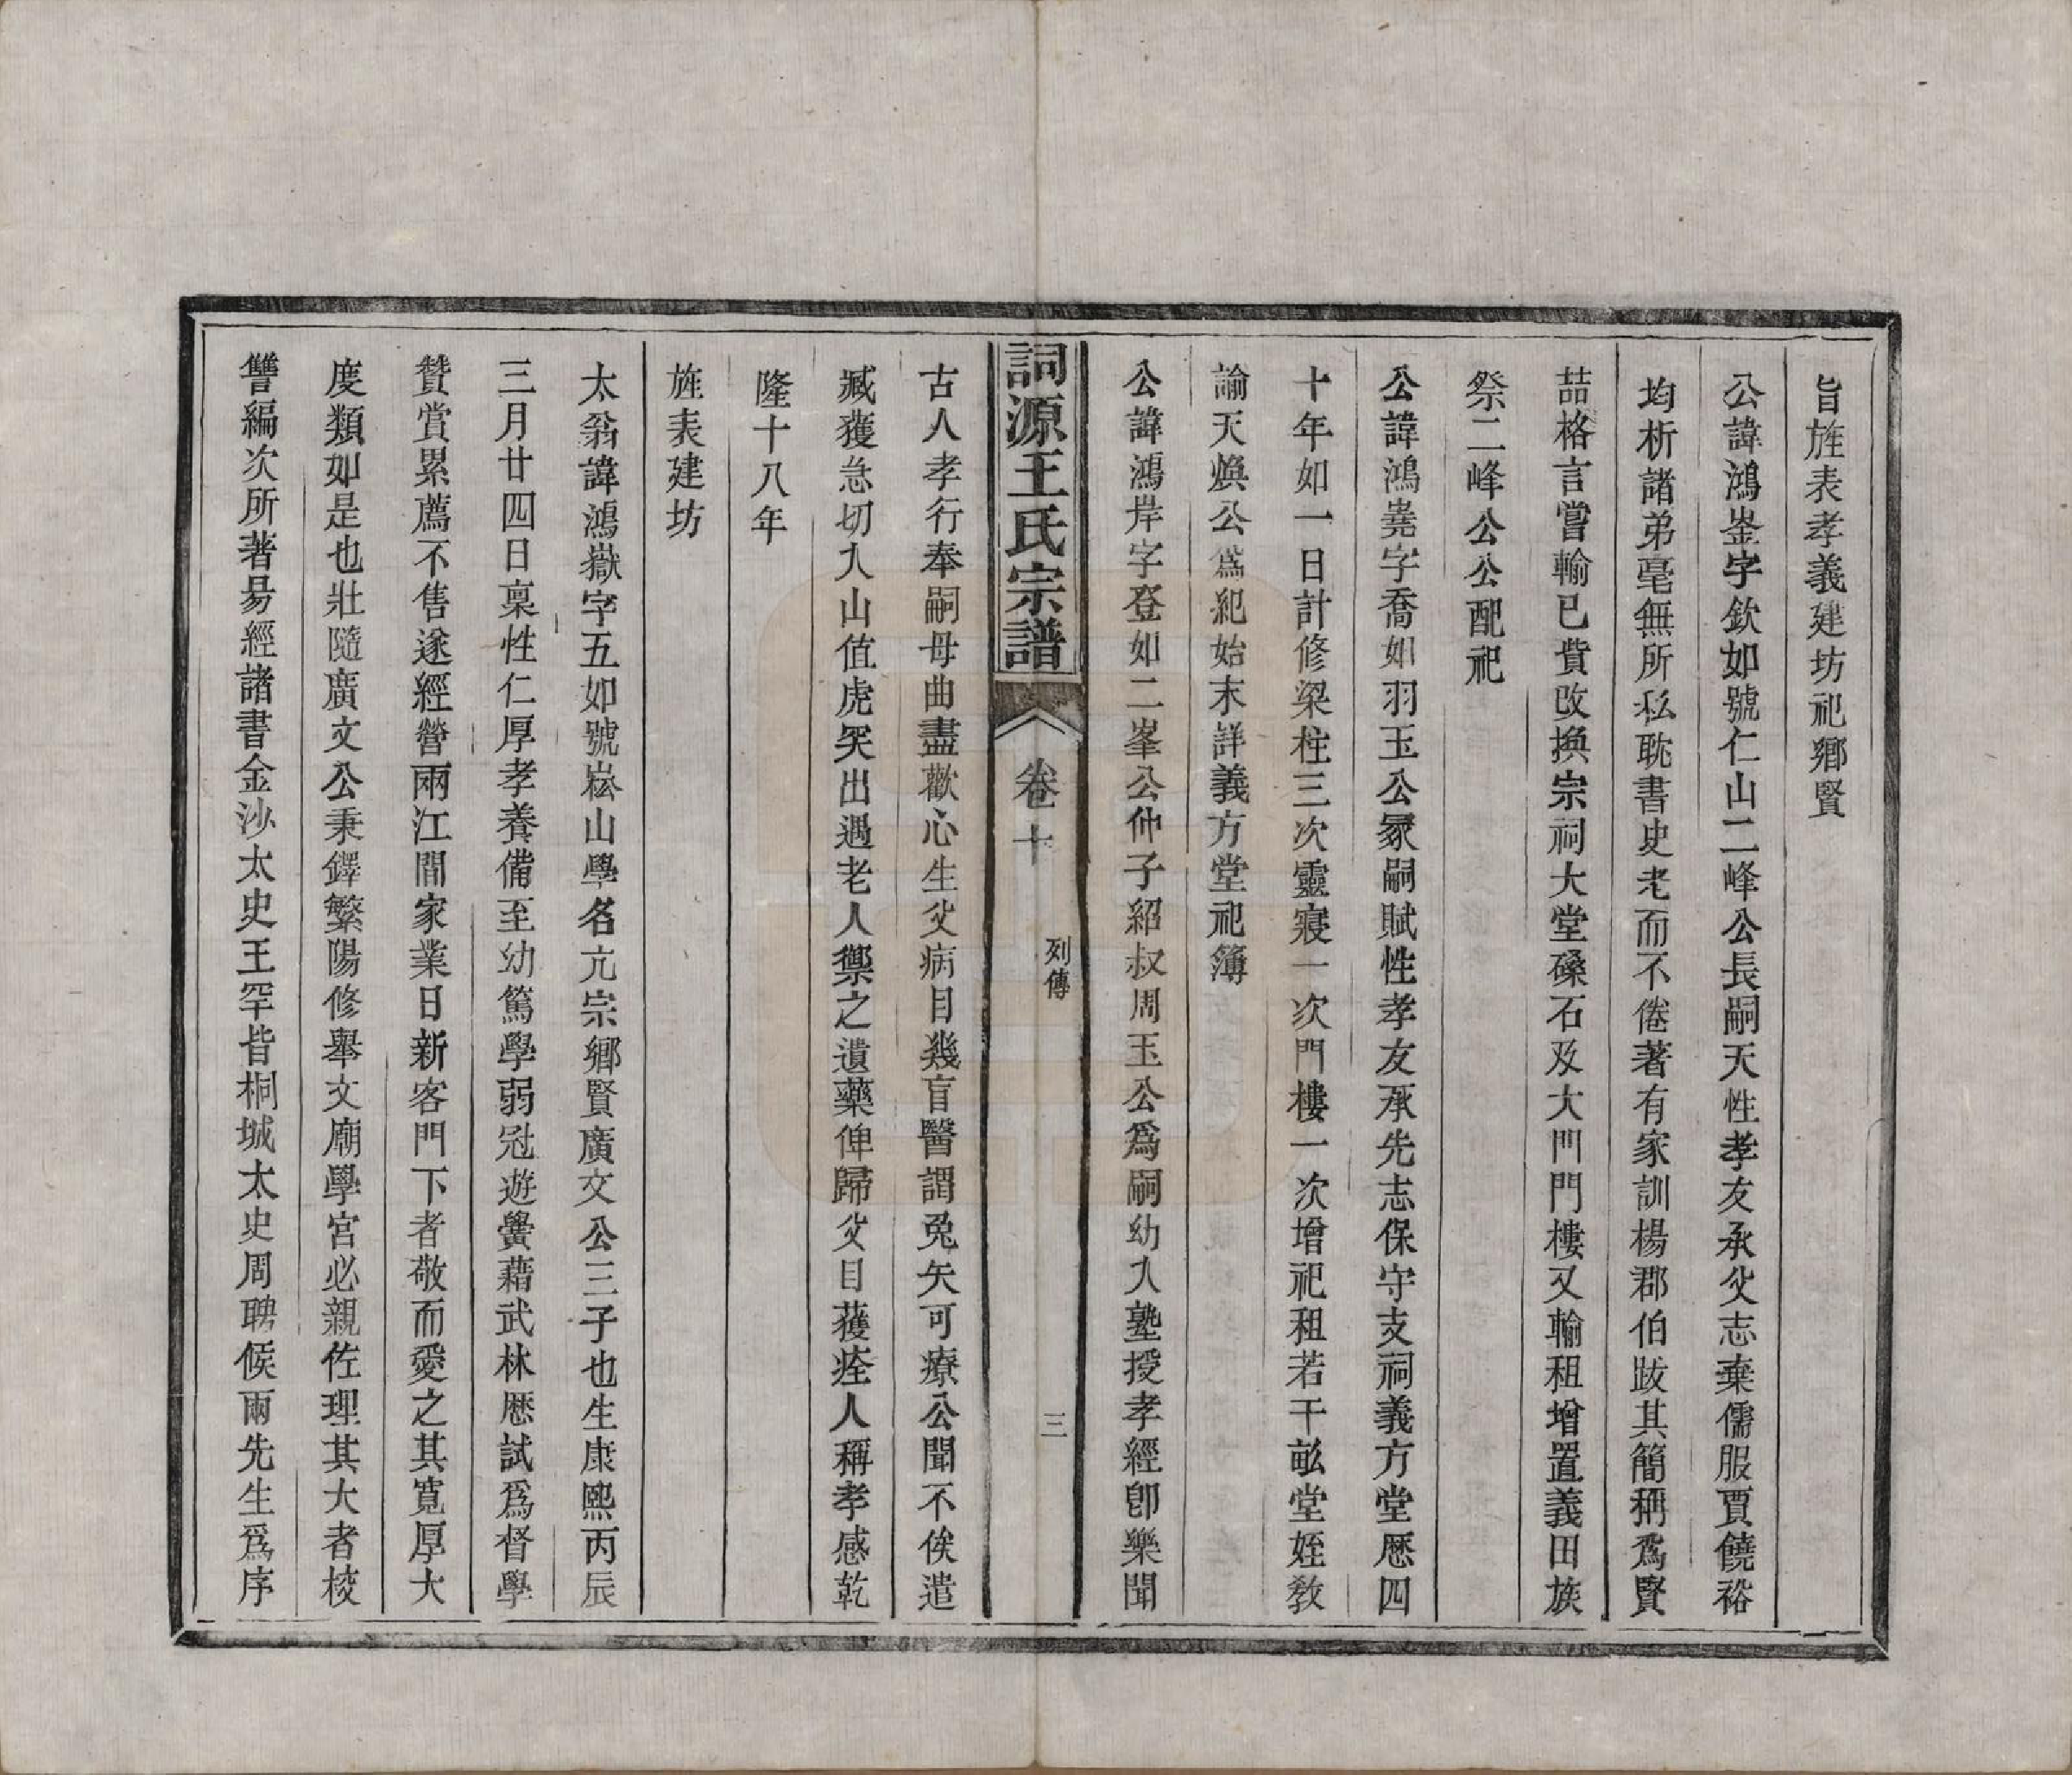 旨旌表孝義建坊祀鄉賢
公諱鴻崟字欽如號仁山二峰公長嗣天性孝友承父志棄儒服賈饒裕
均析諸弟毫無所私耽書史老而不倦著有家訓楊郡伯跋其簡稱爲賢
喆格言嘗輸已貲改換宗祠大堂磉石及大門門樓又輸租增置義田族
祭二峰公公配祀
公諱鴻堯字喬如羽玉公冢嗣賦性孝友承先志保守支祠義方堂歷四
十年如一日計修梁柱三次靈寢一次門樓一次增祀租若干畝堂姪敎
諭天煥公爲紀始末詳義方堂祀簿
公諱鴻岸字登如二峯公仲子紹叔周玉公爲嗣幼入塾授孝經卽樂聞
詞源王氏宗譜 卷十 列傳 三
古人孝行奉嗣母曲盡歡心生父病目幾盲醫謂兎矢可療公聞不俟遣
臧獲急切入山值虎突出遇老人禦之遺藥俾歸父目獲痊人稱孝感乾
隆十八年
旌表建坊
太翁諱鴻嶽字五如號崧山學名亢宗鄉賢廣文公三子也生康熙丙辰
三月廿四日稟性仁厚孝養備至幼篤學弱冠遊黌藉武林歷試爲督學
贊賞累薦不售遂經營兩江間家業日新客門下者敬而愛之其寬厚大
度類如是也壯隨廣文公秉鐸繁陽修舉文廟學宮必親佐理其大者校
讐編次所著易經諸書金沙太史王罕皆桐城太史周聘侯兩先生爲序